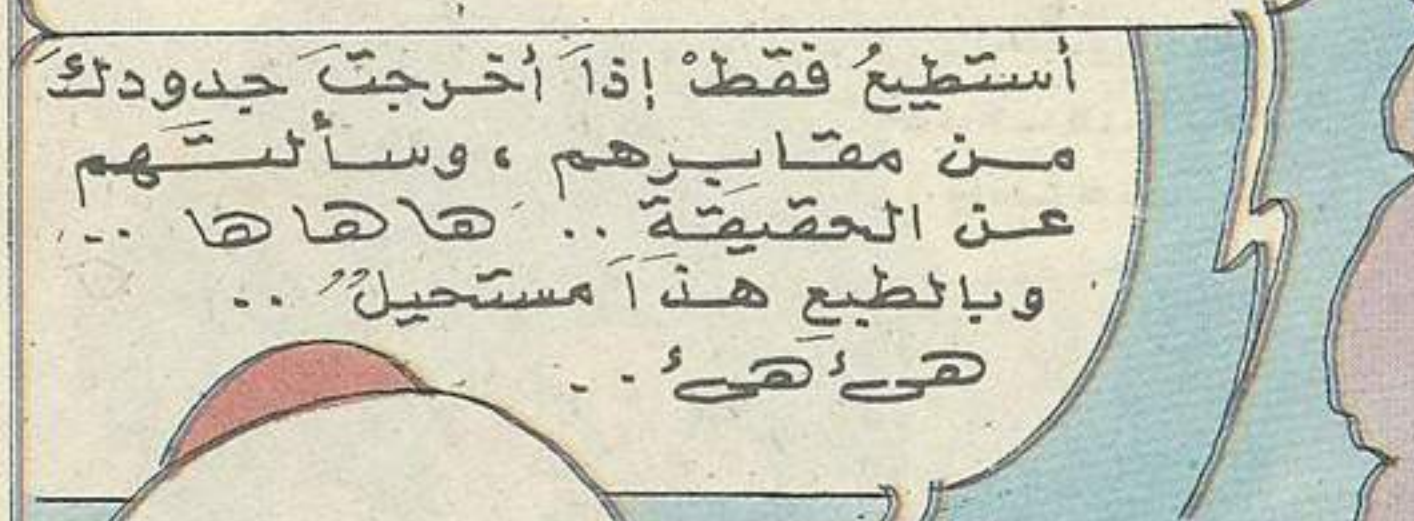 أستطيعُ فقطْ إذاَ أخرجتَ جدودكَ
من مقابرهم ، وسألتَهم
عن الحقيقَة .. هَا ها ها ..
وبالطبعِ هذَاَ مستحيلٌ ..
هئ هئ ..